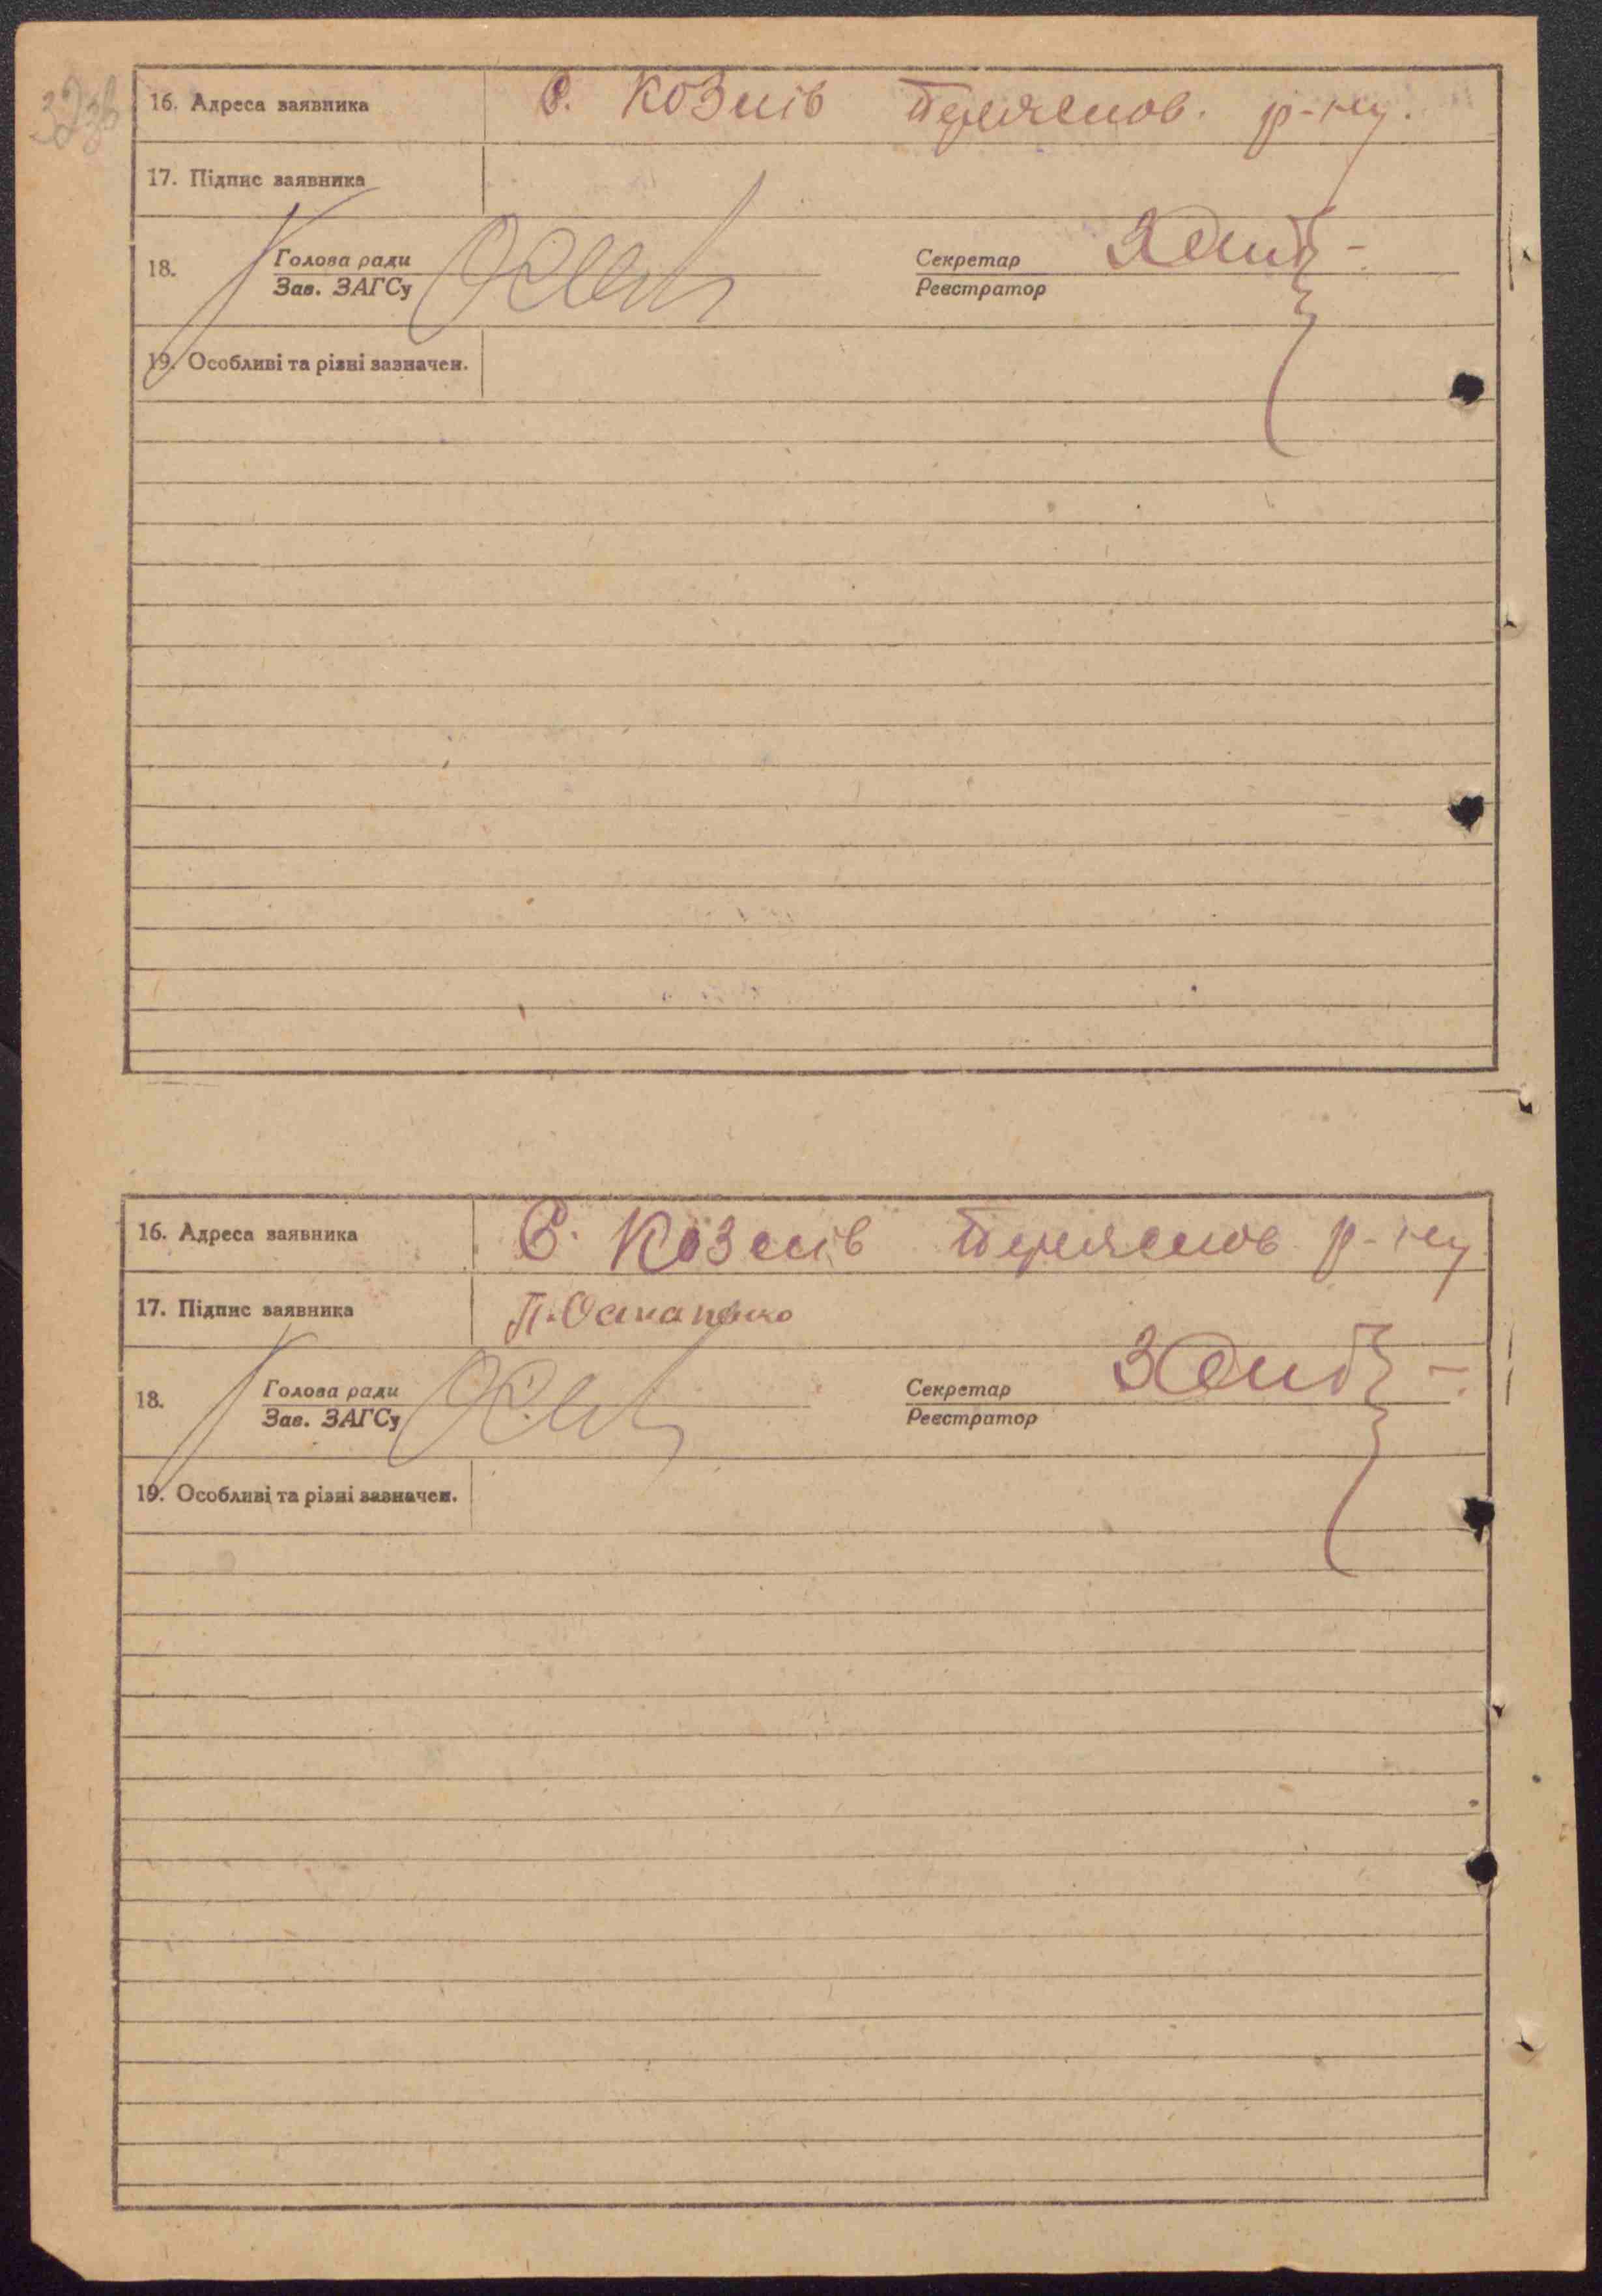 16. Адреса заявника С. Козлів Переяслов. р-ну.
17. Підпис заявника
18. Голова ради Секретар
Зав. ЗАГСу Реєстратор
19. Особливі та різні зазначен.
16. Адреса заявника С. Козлів Переяслов р-ну
17. Підпис заявника П. Остапенко
18. Голова ради Секретар
Зав. ЗАГСу Реєстратор
19. Особливі та різні зазначен.